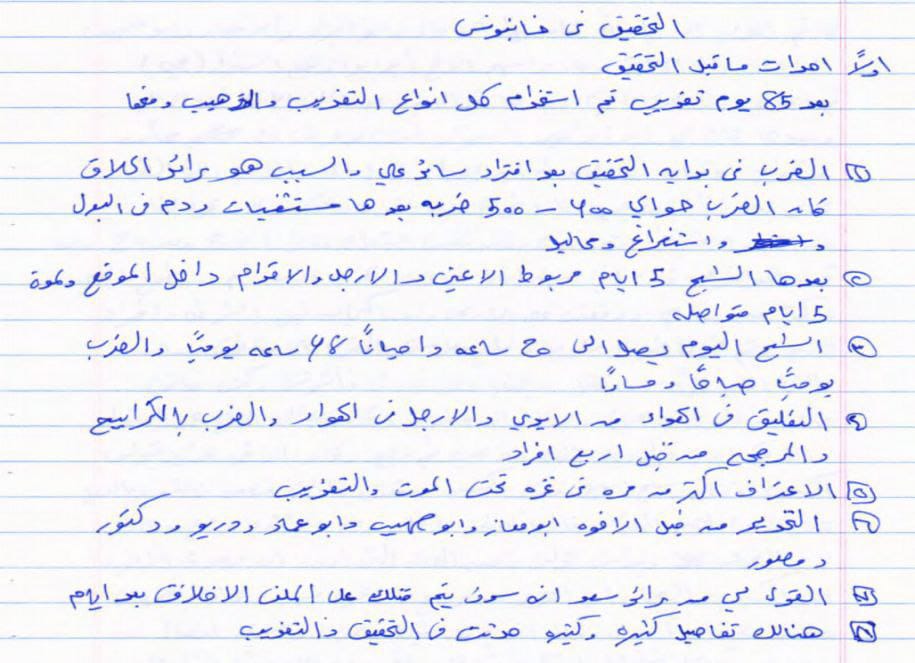 التحقيق في خانيونس
اولاً احداث ما قبل التحقيق
بعد 85 يوم تعذيب تم استخدام كل انواع التعذيب والترهيب ومنها
① الضرب في بدايه التحقيق بعد والسبب هو رائد الحلاق
كان الضرب حوالي 400 - 500 ضربه بعدها مستشفيات ودم في البول
واستفراغ ومحاليل
② بعدها الشبح 5 ايام مربوط الاعين والارجل والاقدام داخل الموقع ولمدة
5 ايام متواصله
③ الشبح اليوم يصل الى 20 ساعه واحياناً ساعه يومياً والضرب
يومياً صباحاً ومساءاً
④ التعليق في الهواء من الايدي والارجل في الهواء والضرب بالكرابيج
من قبل اربع افراد
⑤ الاعتراف اكثر من مره في غزه تحت الموت والتعذيب
⑥ من قبل الاخوه ابو معاذ وابو صهيب وابو عماد ودكتور
⑦ القول لي من رائد سعد انه سوف يتم قتلك على الملف الاخلاقي بعد
⑧ هنالك تفاصيل كثيره وكثيره حدثت في التحقيق والتعذيب